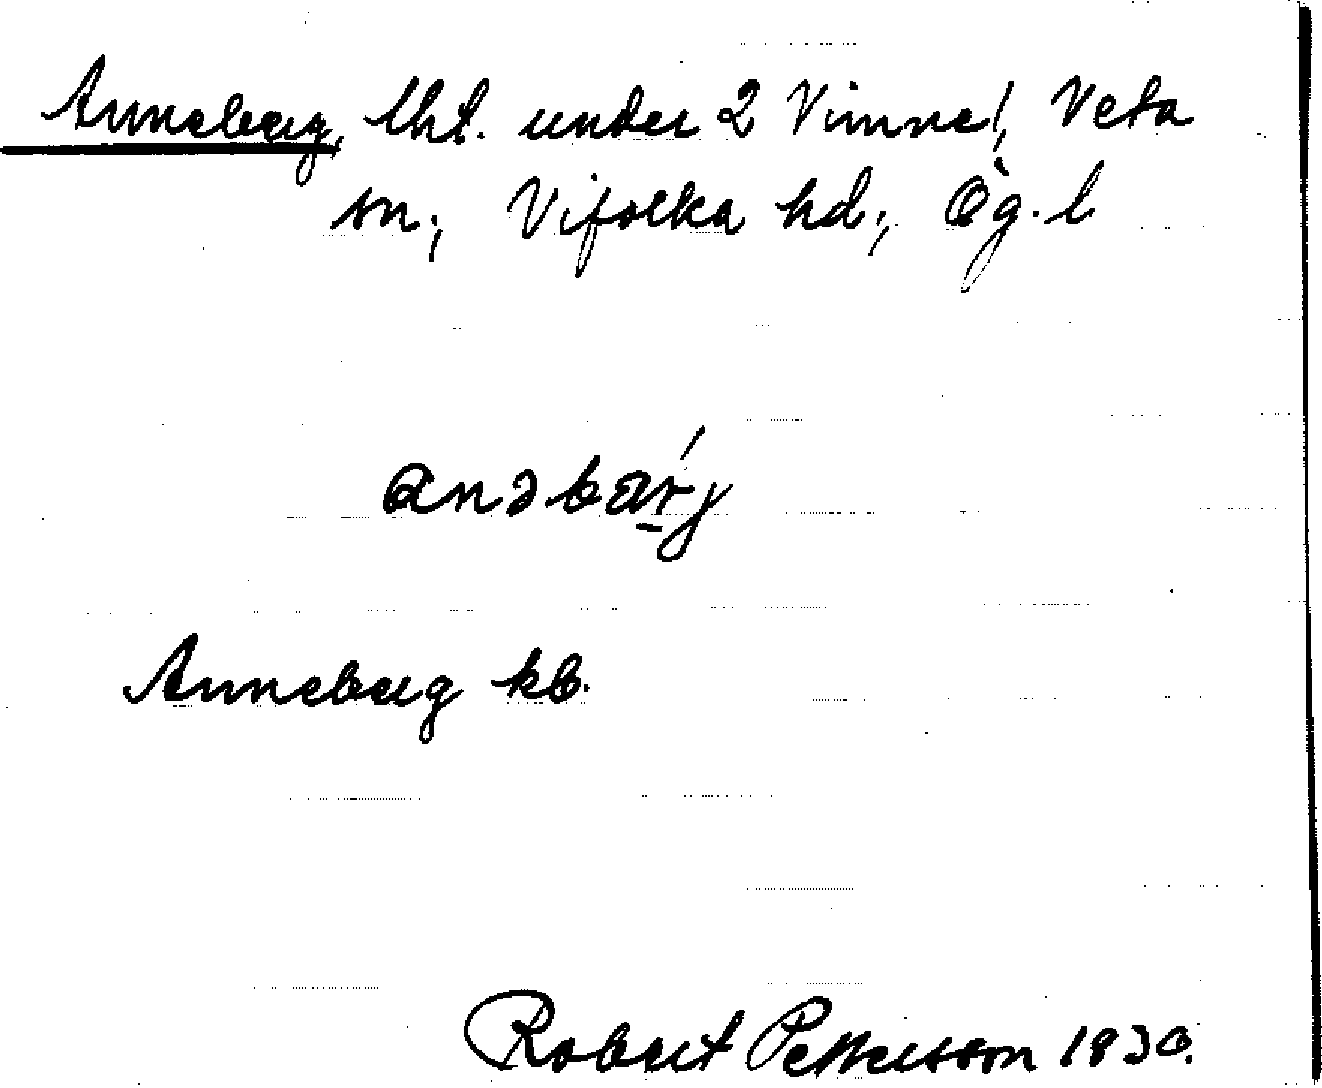 Anneberg, lht. under 2 Vimne!, Veta
sn., Vifolka hd., Ög. l
anəbærj
Anneberg kb.
Robert Pettersson 1930.